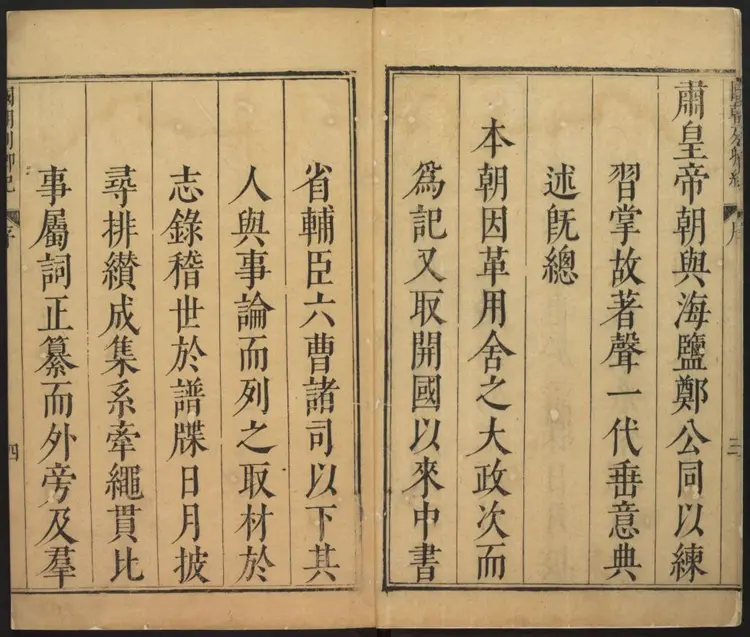 肅皇帝朝與海鹽鄭公同以練
習掌故著聲一代垂意典
述旣總
本朝因革用舍之大政次而
爲記又取開國以來中書
省輔臣六曹諸司以下其
人與事論而列之取材於
志錄稽世於譜牒日月披
尋排纘成集系牽繩貫比
事屬詞正纂而外旁及羣
四